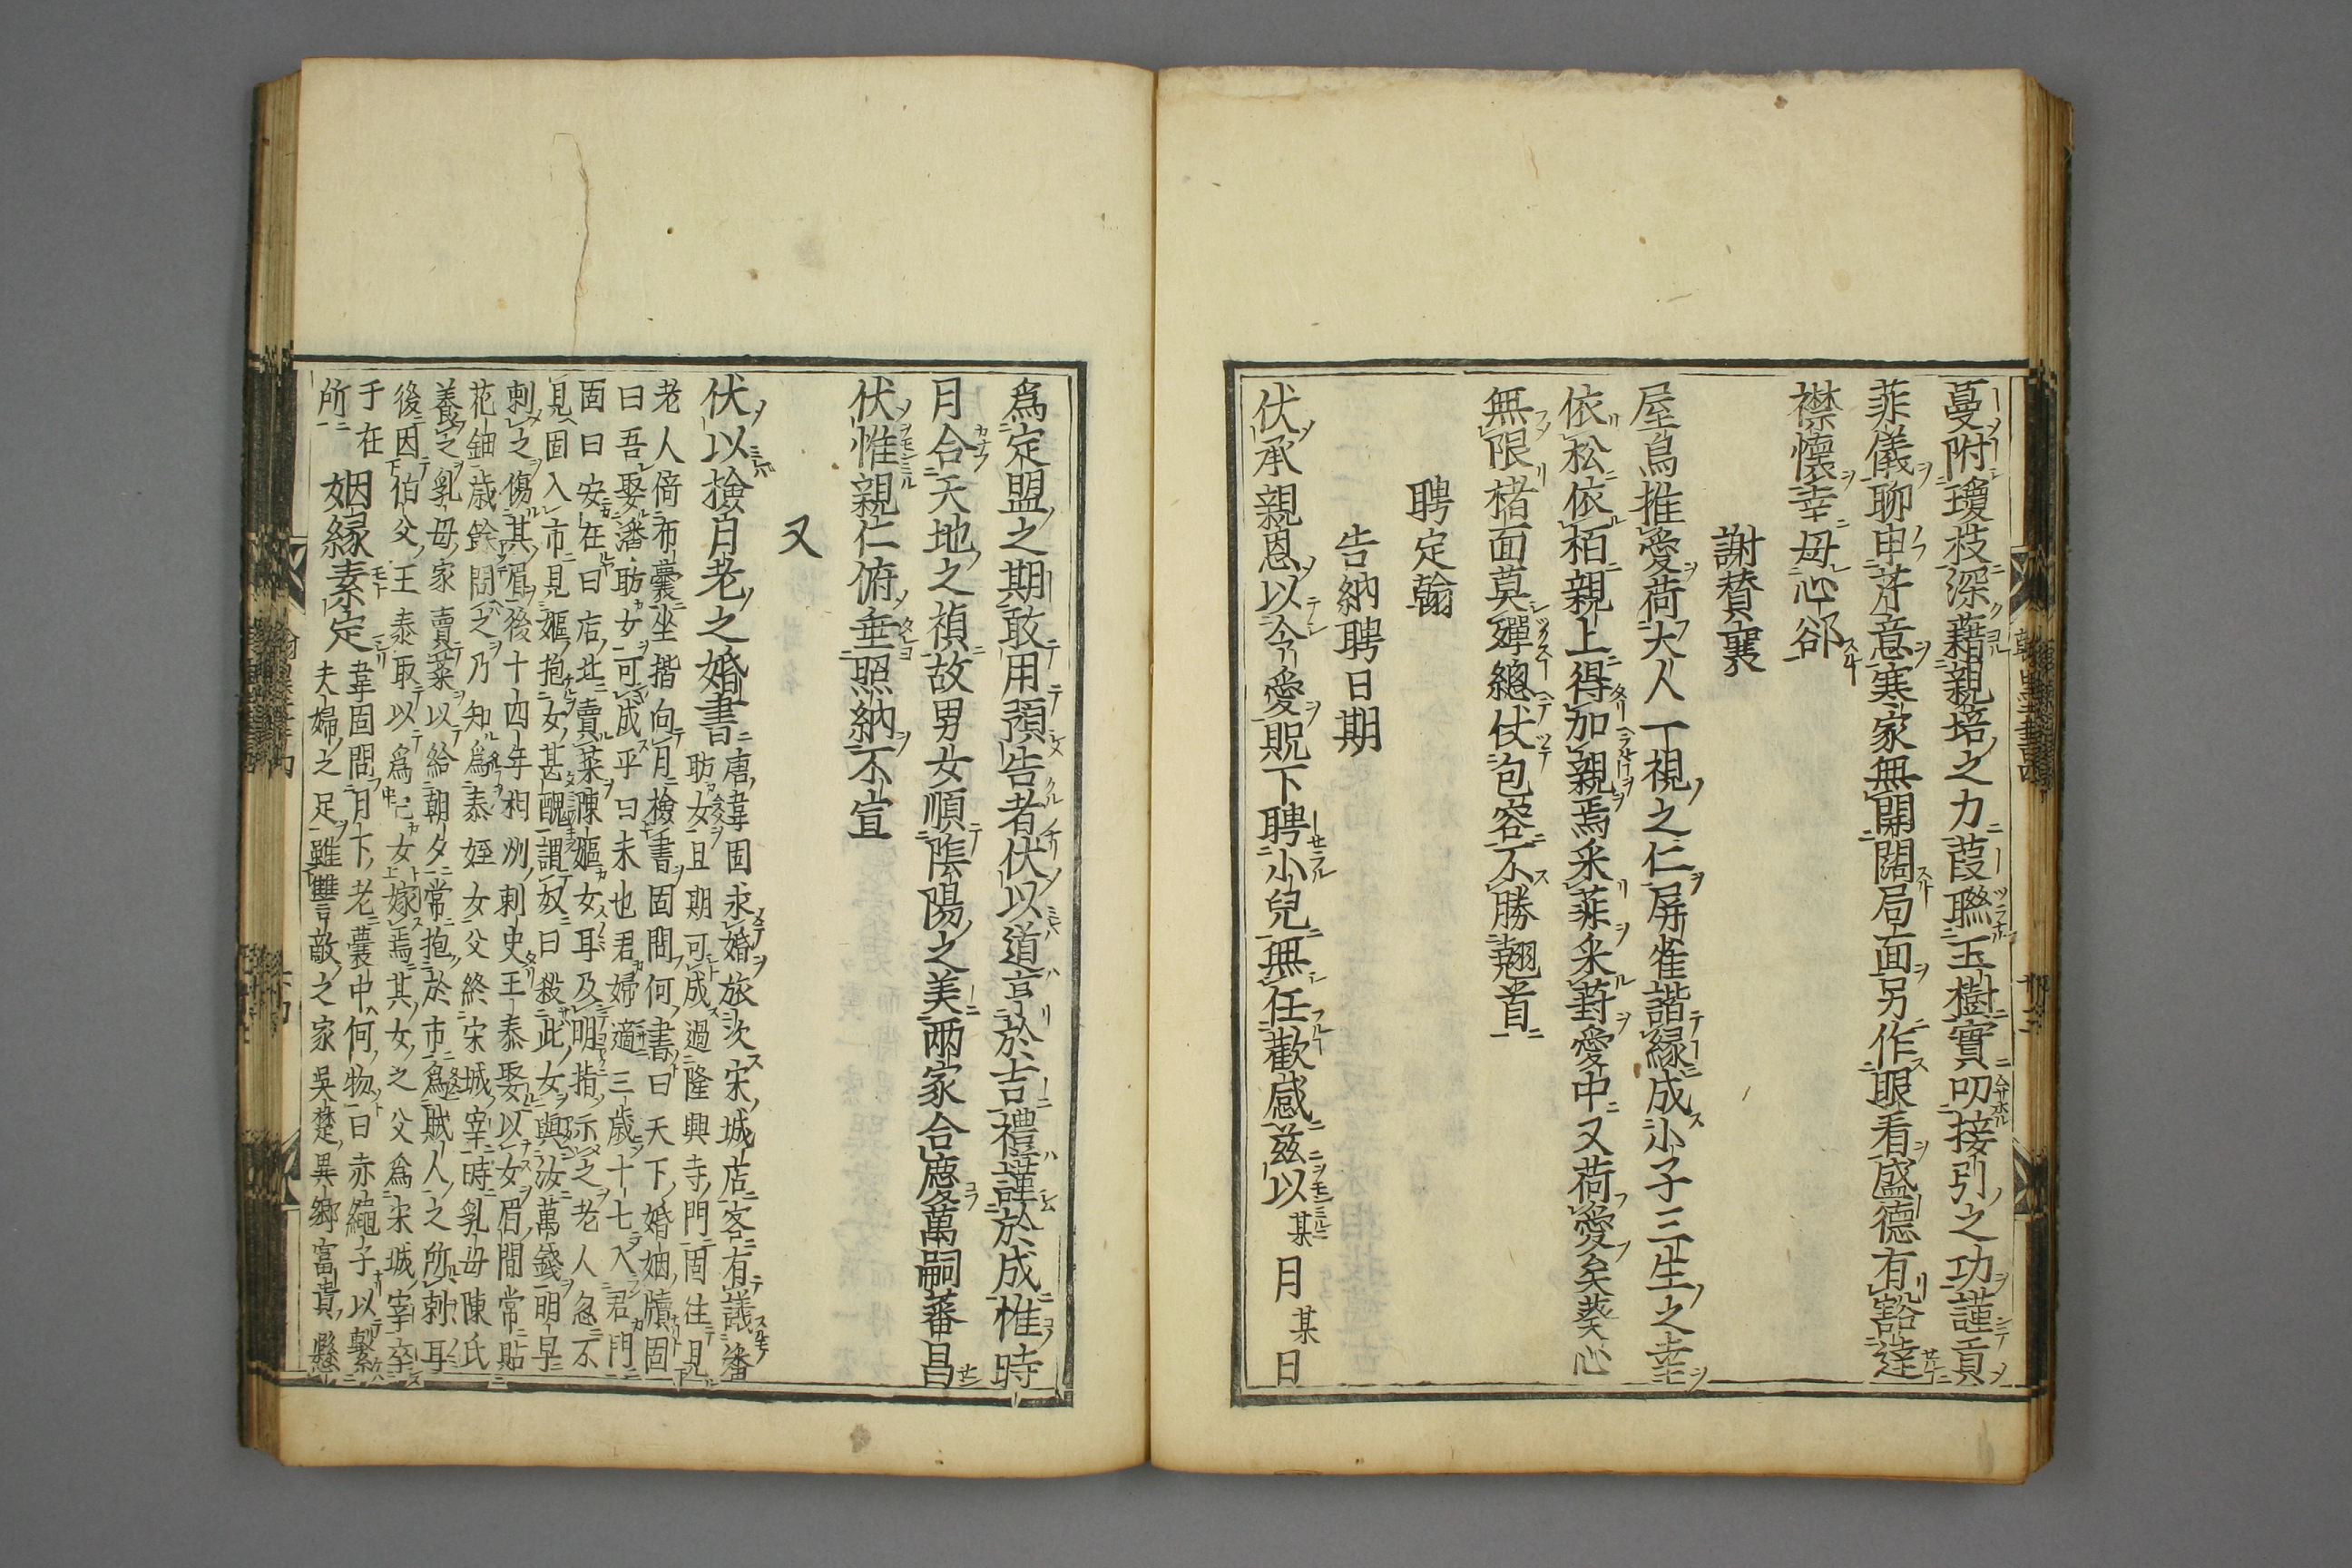 蔓附瓊枝深藉親培之力葭聮玉樹實叨接引之功謹貢
菲儀聊申芹意寒家無開闊局面另作眼看盛德有豁達
襟懷幸毋心郤
謝賛襄
屋烏推愛荷大人一視之仁屏雀諧緣成小子三生之幸
依松依栢親上得加親焉采菲采葑愛中又荷愛矣葵心
無限楮面莫殫總仗包容不勝翹首
聘定翰
告納聘日期
伏承親恩以令愛貺下聘小兒無任歡感兹以某月某日
爲定盟之期敢用預告者伏以道亨於吉禮謹於成惟時
月合天地之禎故男女順陰陽之美兩家合慶萬嗣蕃昌
伏惟親仁俯垂照納不宣
又
伏以檢月老之婚書
唐韋固求婚旅次宋城店客有議潘
昉女且期可成過隆興寺門固往見
老人倚布囊坐揩向月檢書固問何書曰天下婚姻牘固
曰吾娶潘昉女可成乎曰未也君婦適三歲十七入君門
固曰安在曰店北賣菜陳嫗女耳及明指示之老人忽不
見固入市見嫗抱女甚醜謂奴曰殺此女與汝萬錢明早
刺之傷其眉後十四年相州刺史王泰娶以女眉間常貼
花鈿歲餘問之乃知爲泰姪女父終宋城宰時乳母陳氏
養之乳母家賣菜以給朝夕常抱於市爲賊人之所刺耳
後因伯父王泰取以爲己女嫁焉其女之父爲宋城宰卒
于在
所
姻緣素定
韋固問月下老囊中何物曰赤繩子以繫
夫婦之足雖讐敵之家吳楚異鄉富貴懸